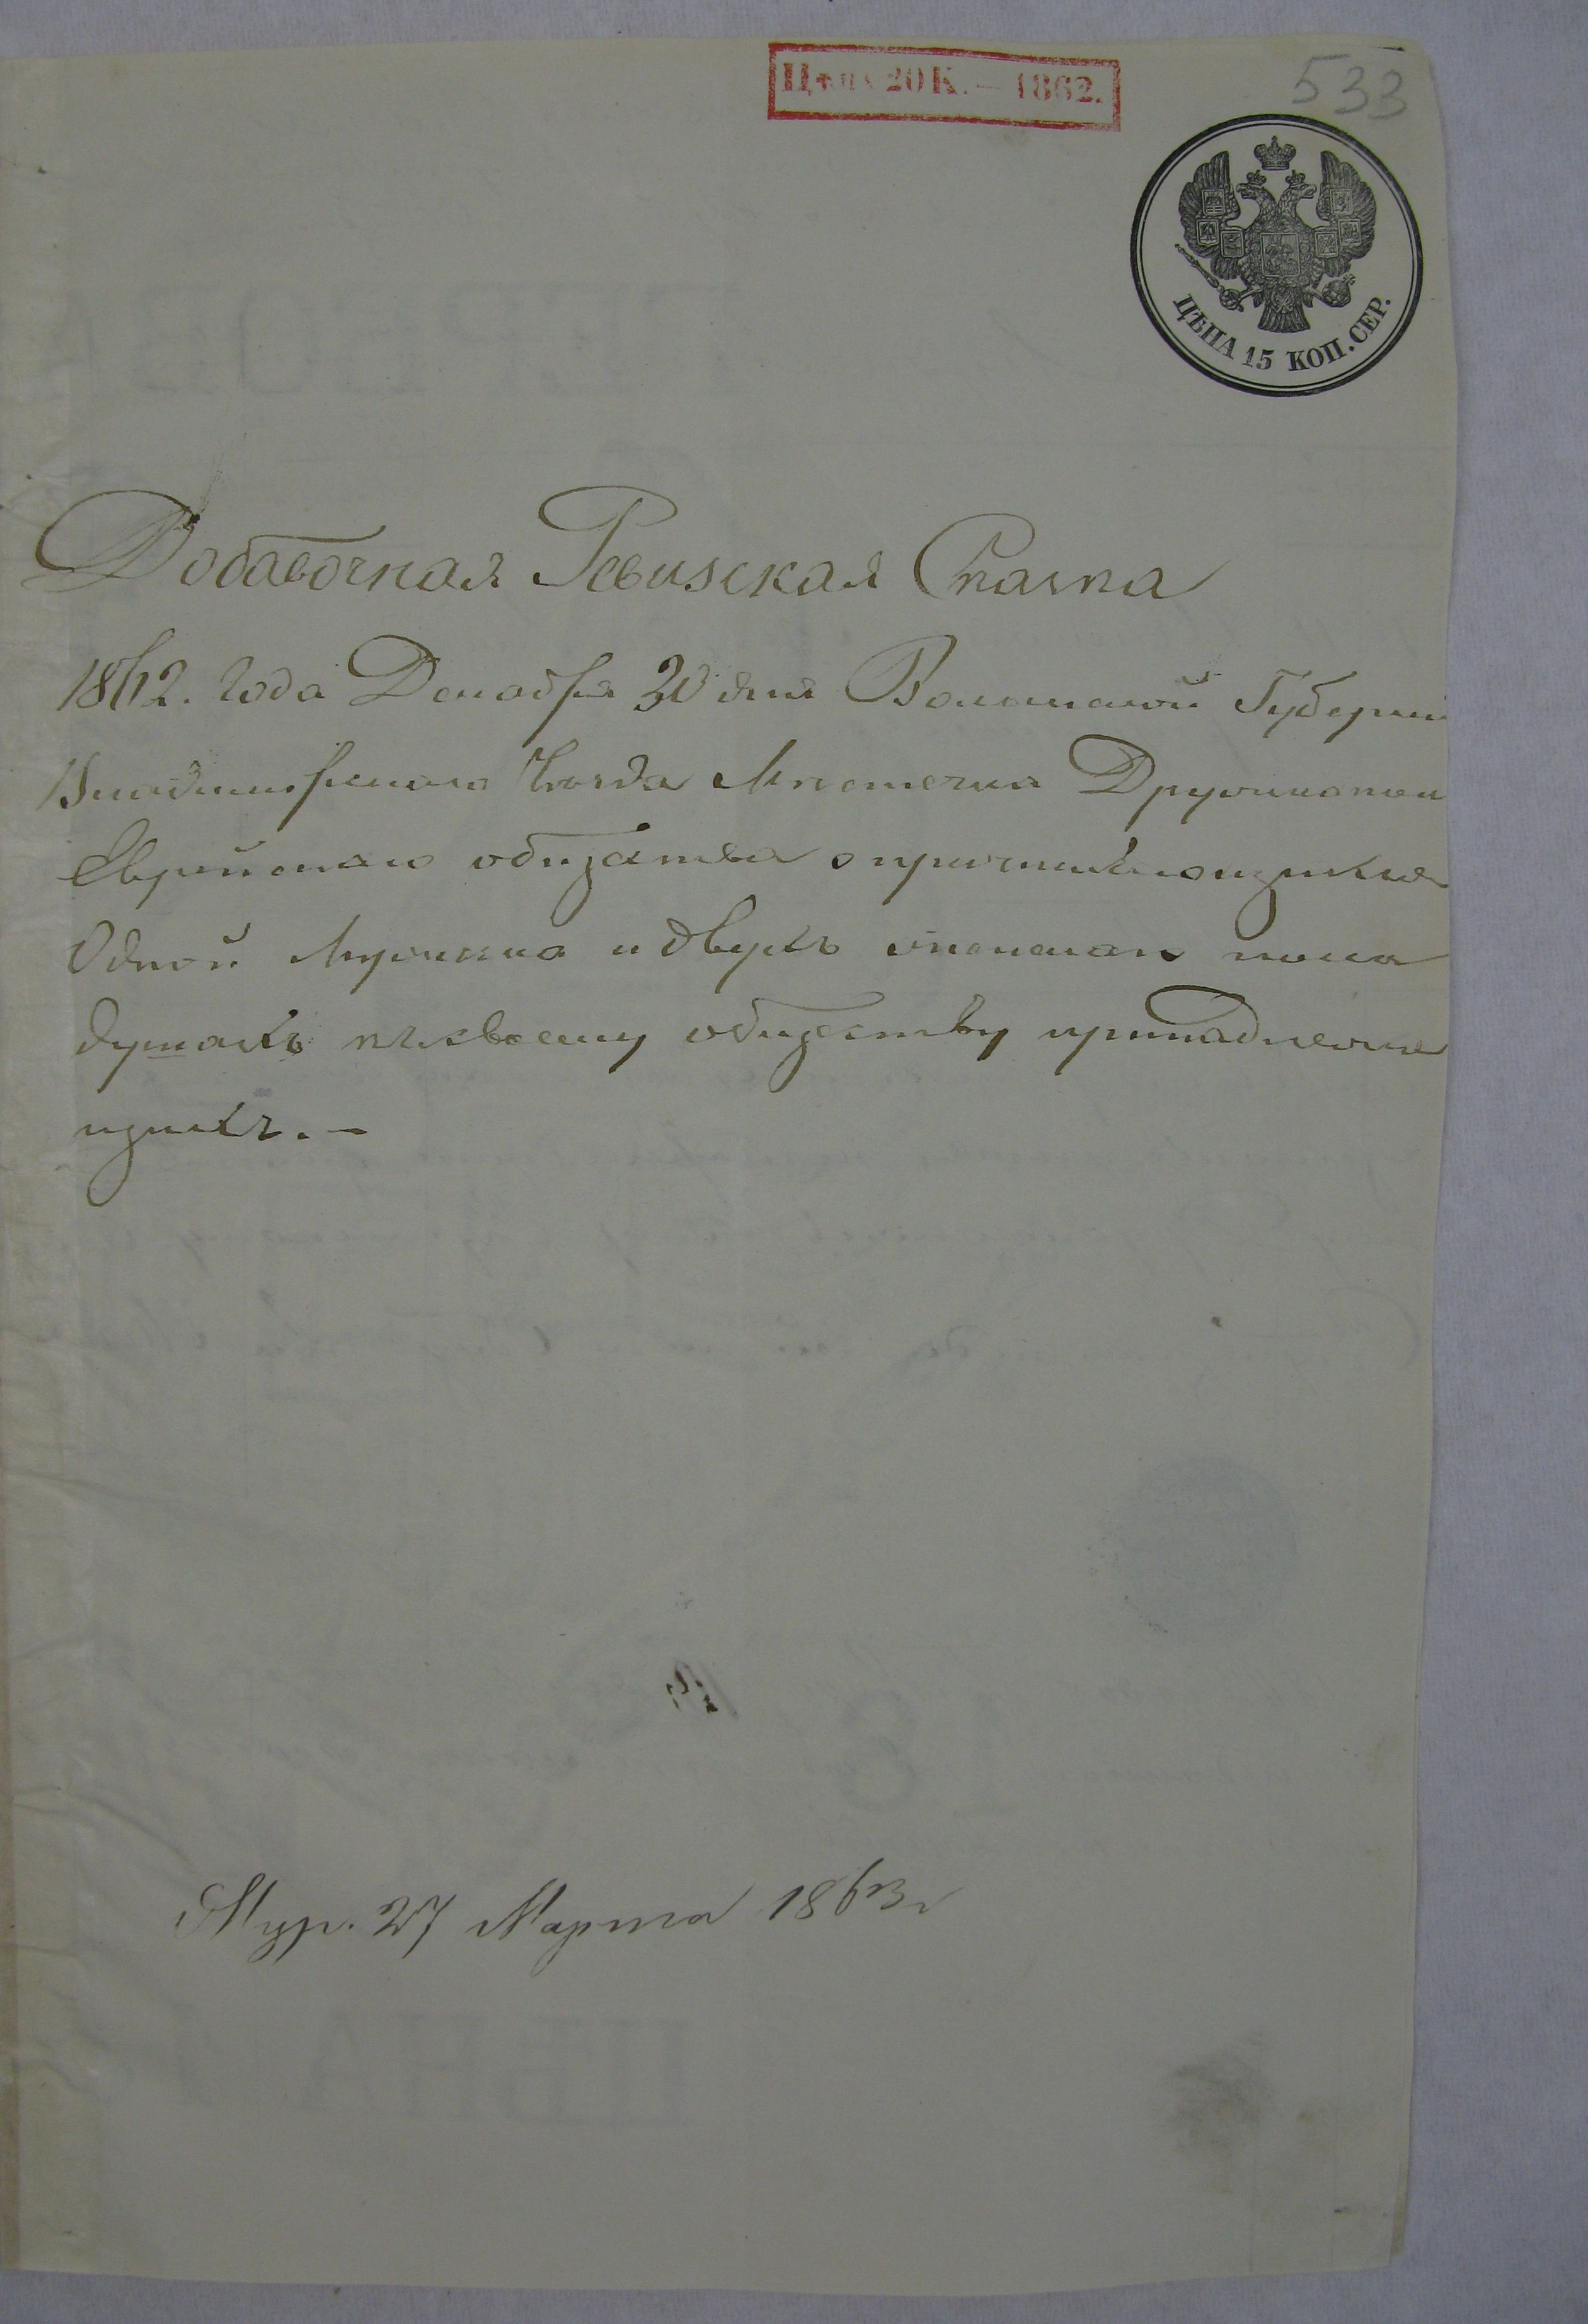 Цѣна 20 К. — 1862.
533
ЦѢНА 15 КОП. СЕР.
Добавочная Ревизская Сказка
1862. Года Декабря 30 дня Волынской Губерніи
Владимірскаго Уѣзда Мѣстечка Дружкополя
Еврейскаго общества о причисляющихся
Одной Мужска и двухъ женскаго пола
душахъ къ своему обществу принадлежа
щихъ. —
27 Марта 1863 г